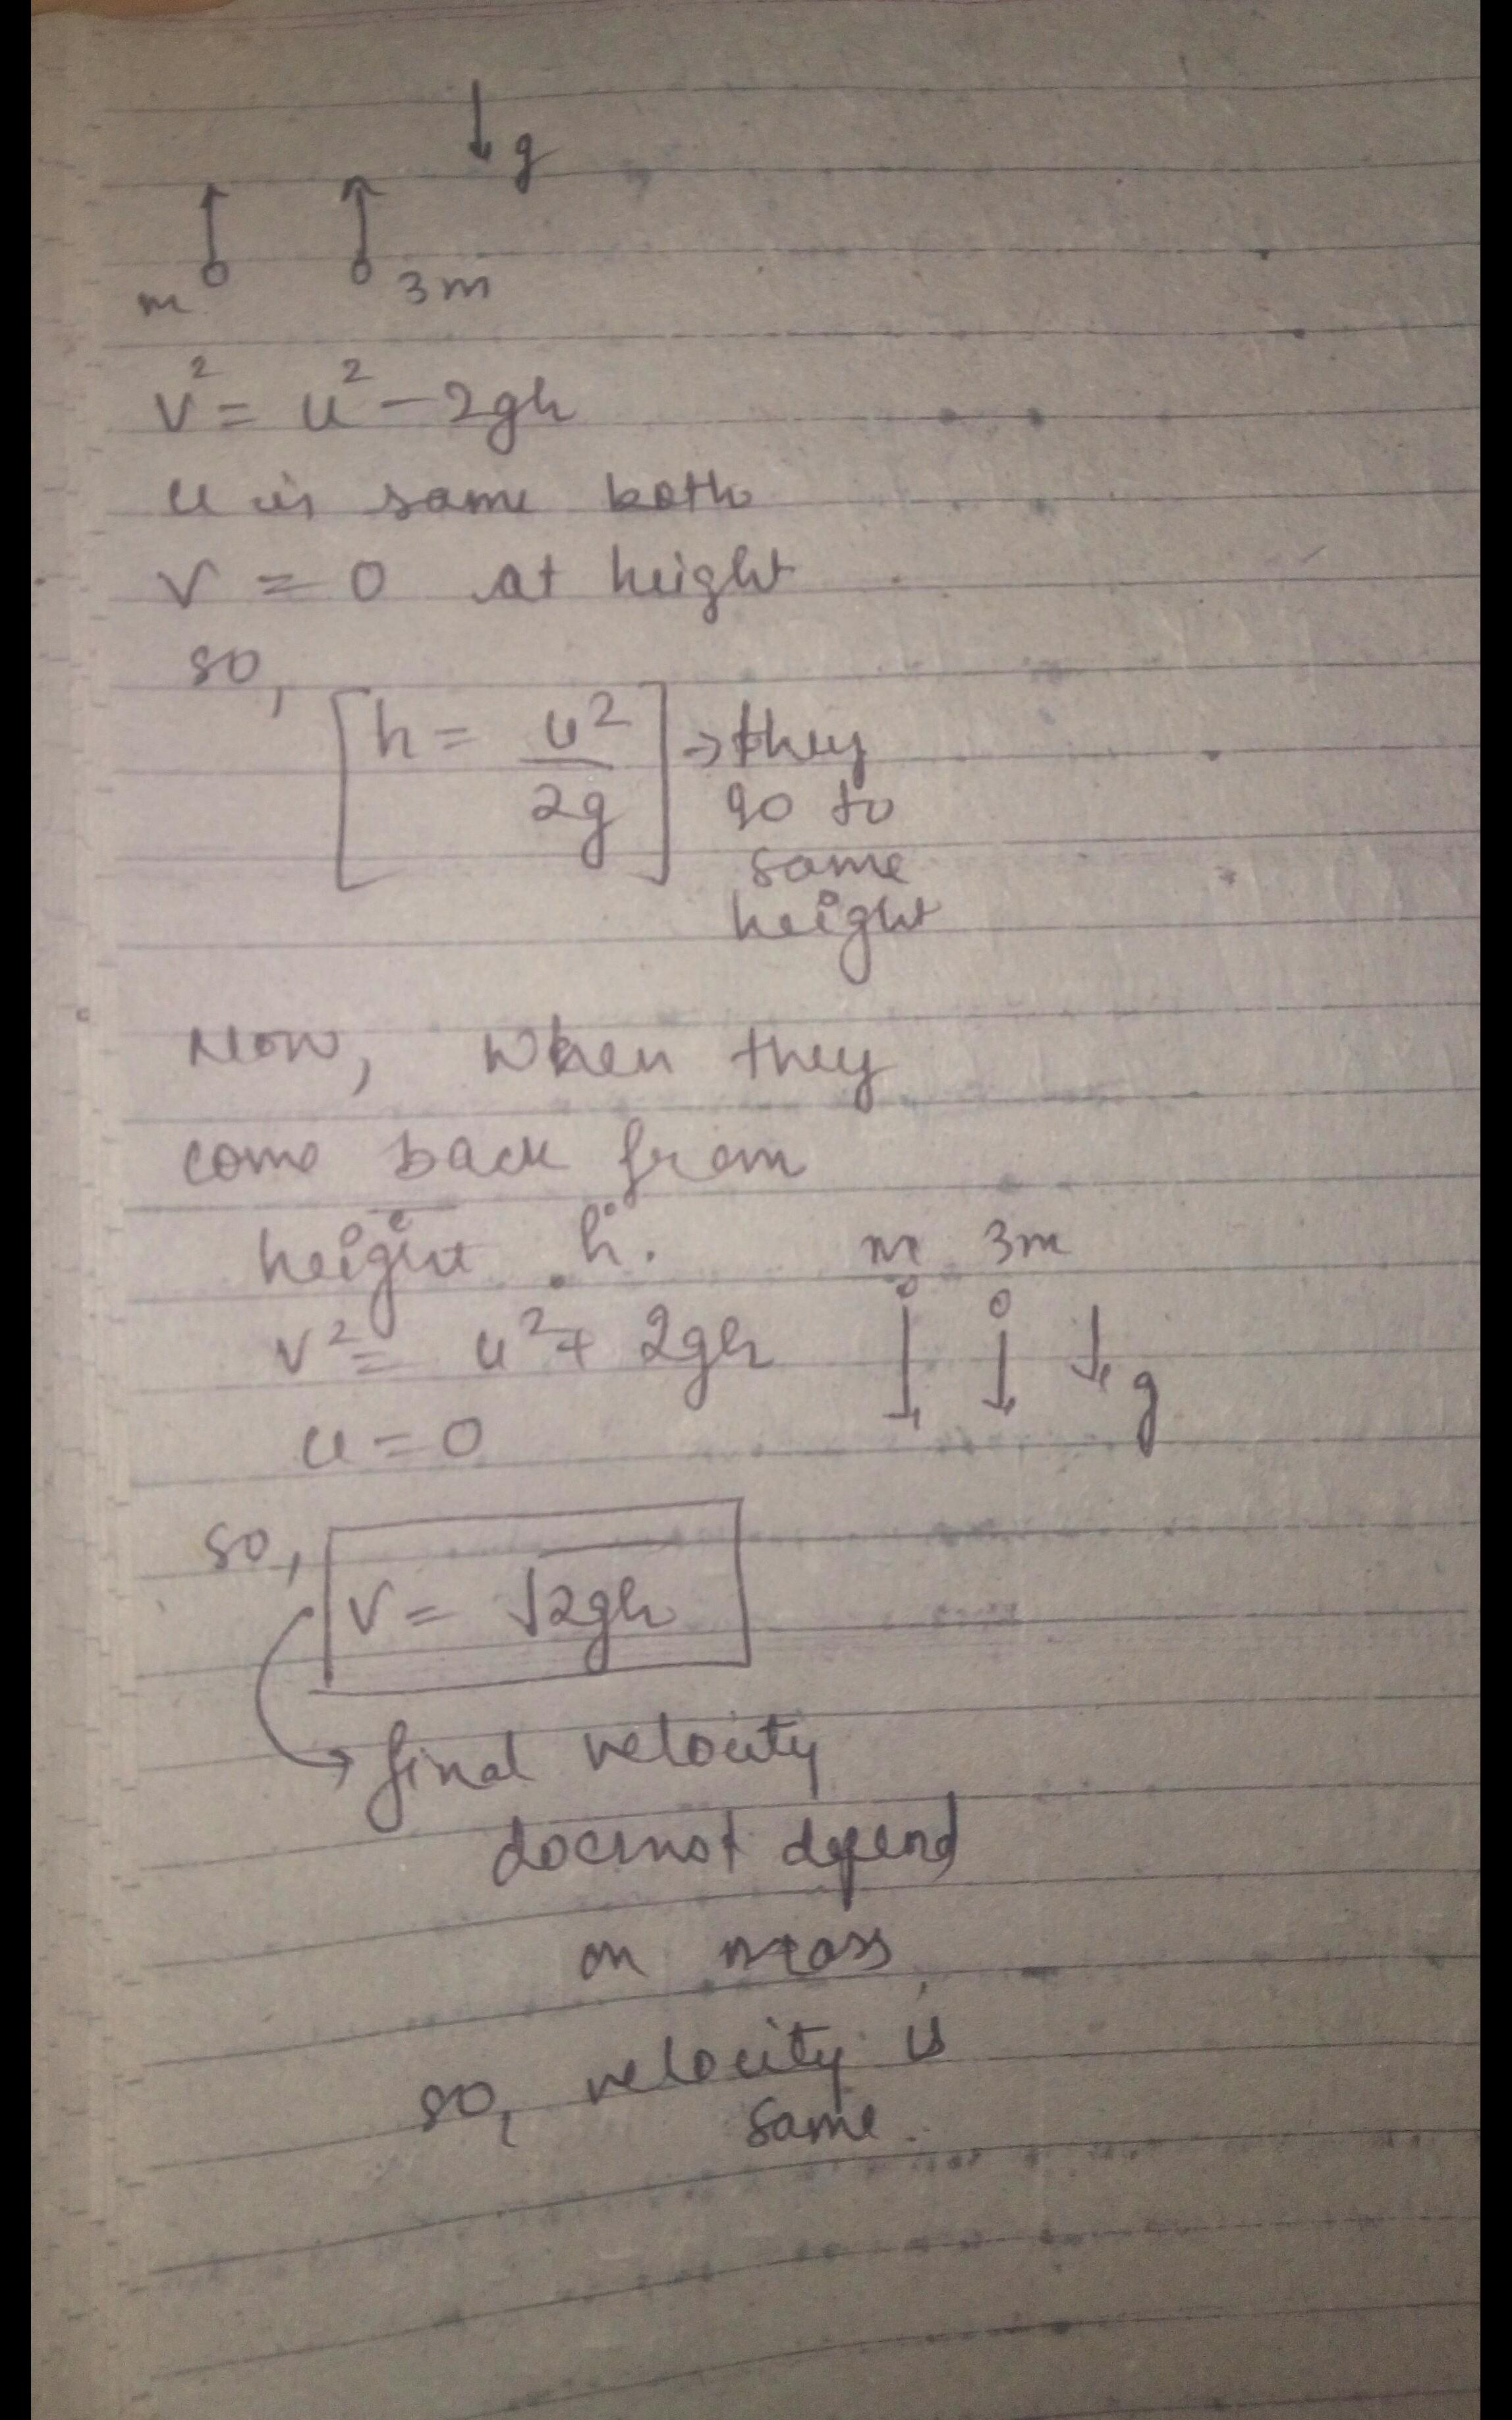 ↓ g
m 3m
v² = u² - 2gh
u is same both
v = 0 at height
so,
[h = u²/2g] → they
go to
same
height
Now, when they
come back from
height h.
m 3m
v² = u² + 2gh
g
u = 0
so,
v = √2gh
→ final velocity
doesnot depend
on mass
so, velocity is
same.